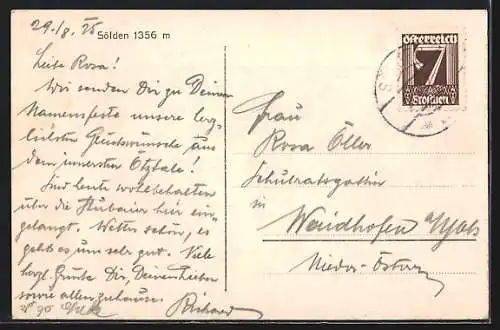 29./8. 25
Sölden 1356 m
Liebe Rosa!
Wir senden Dir zu Deinem
Namensfeste unsere herz-
lichsten Glückwünsche aus
dem innersten Ötztale!
Sind heute wohlbehalten
über die Stubaier hier ein-
gelangt. Wetter schön, es
geht uns sehr gut. Viele
herzl. Grüße Dir, Deinen Lieben
sowie allen zuhause
Richard
Österreich
7
Groschen
Frau
Rosa Öller
Schulratsgattin
in
Waidhofen a/Ybbs
Nieder-Österr.